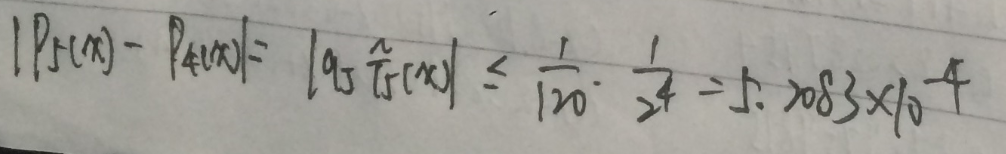 |P₅(x) - P₄(x)| = |a₅ T̃₅(x)| ≤ 1/120 · 1/2⁴ = 5.2083×10⁻⁴